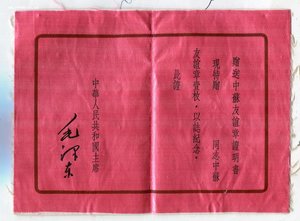 贈送中蘇友誼章證明書
現特贈　　　同志中蘇
友誼章壹枚，以誌紀念。
此證
中華人民共和國主席
毛澤東